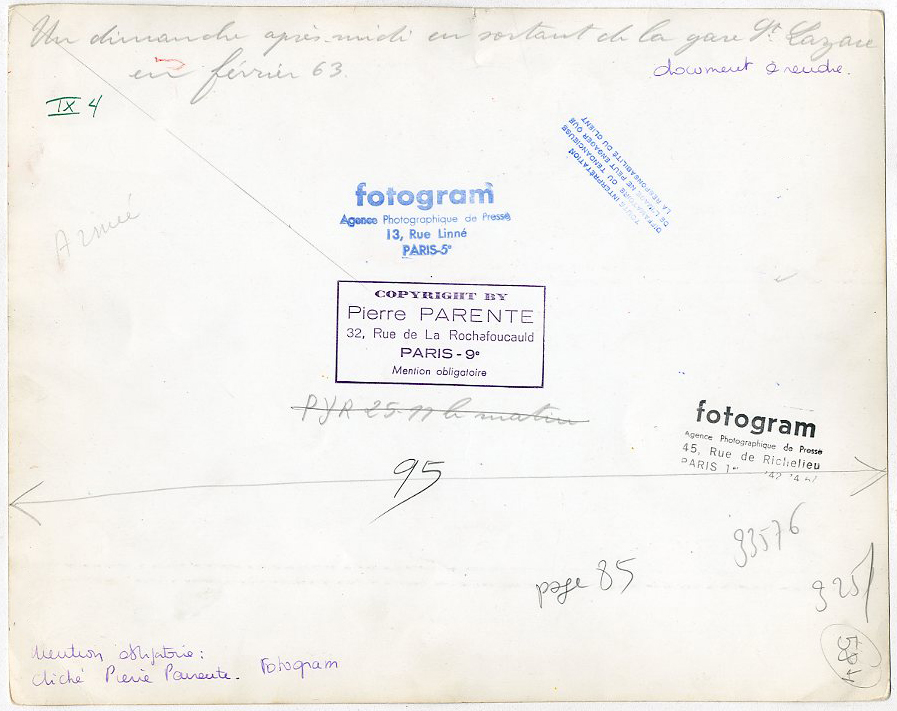 Un dimanche après-midi en sortant de la gare St Lazare
en février 63.
document à rendre.
IX 4
TOUTE INTERPRÉTATION
DIFFAMATOIRE OU TENDANCIEUSE
DE L'IMAGE NE PEUT ENGAGER QUE
LA RESPONSABILITÉ DU CLIENT
fotogram
Agence Photographique de Presse
13, Rue Linné
PARIS-5e
Armée
COPYRIGHT BY
Pierre PARENTE
32, Rue de La Rochefoucauld
PARIS - 9e
Mention obligatoire
25-11 le matin
fotogram
Agence Photographique de Presse
45, Rue de Richelieu
PARIS 1er
95
93576
page 85
325
Mention obligatoire:
Cliché Pierre Parente. Fotogram